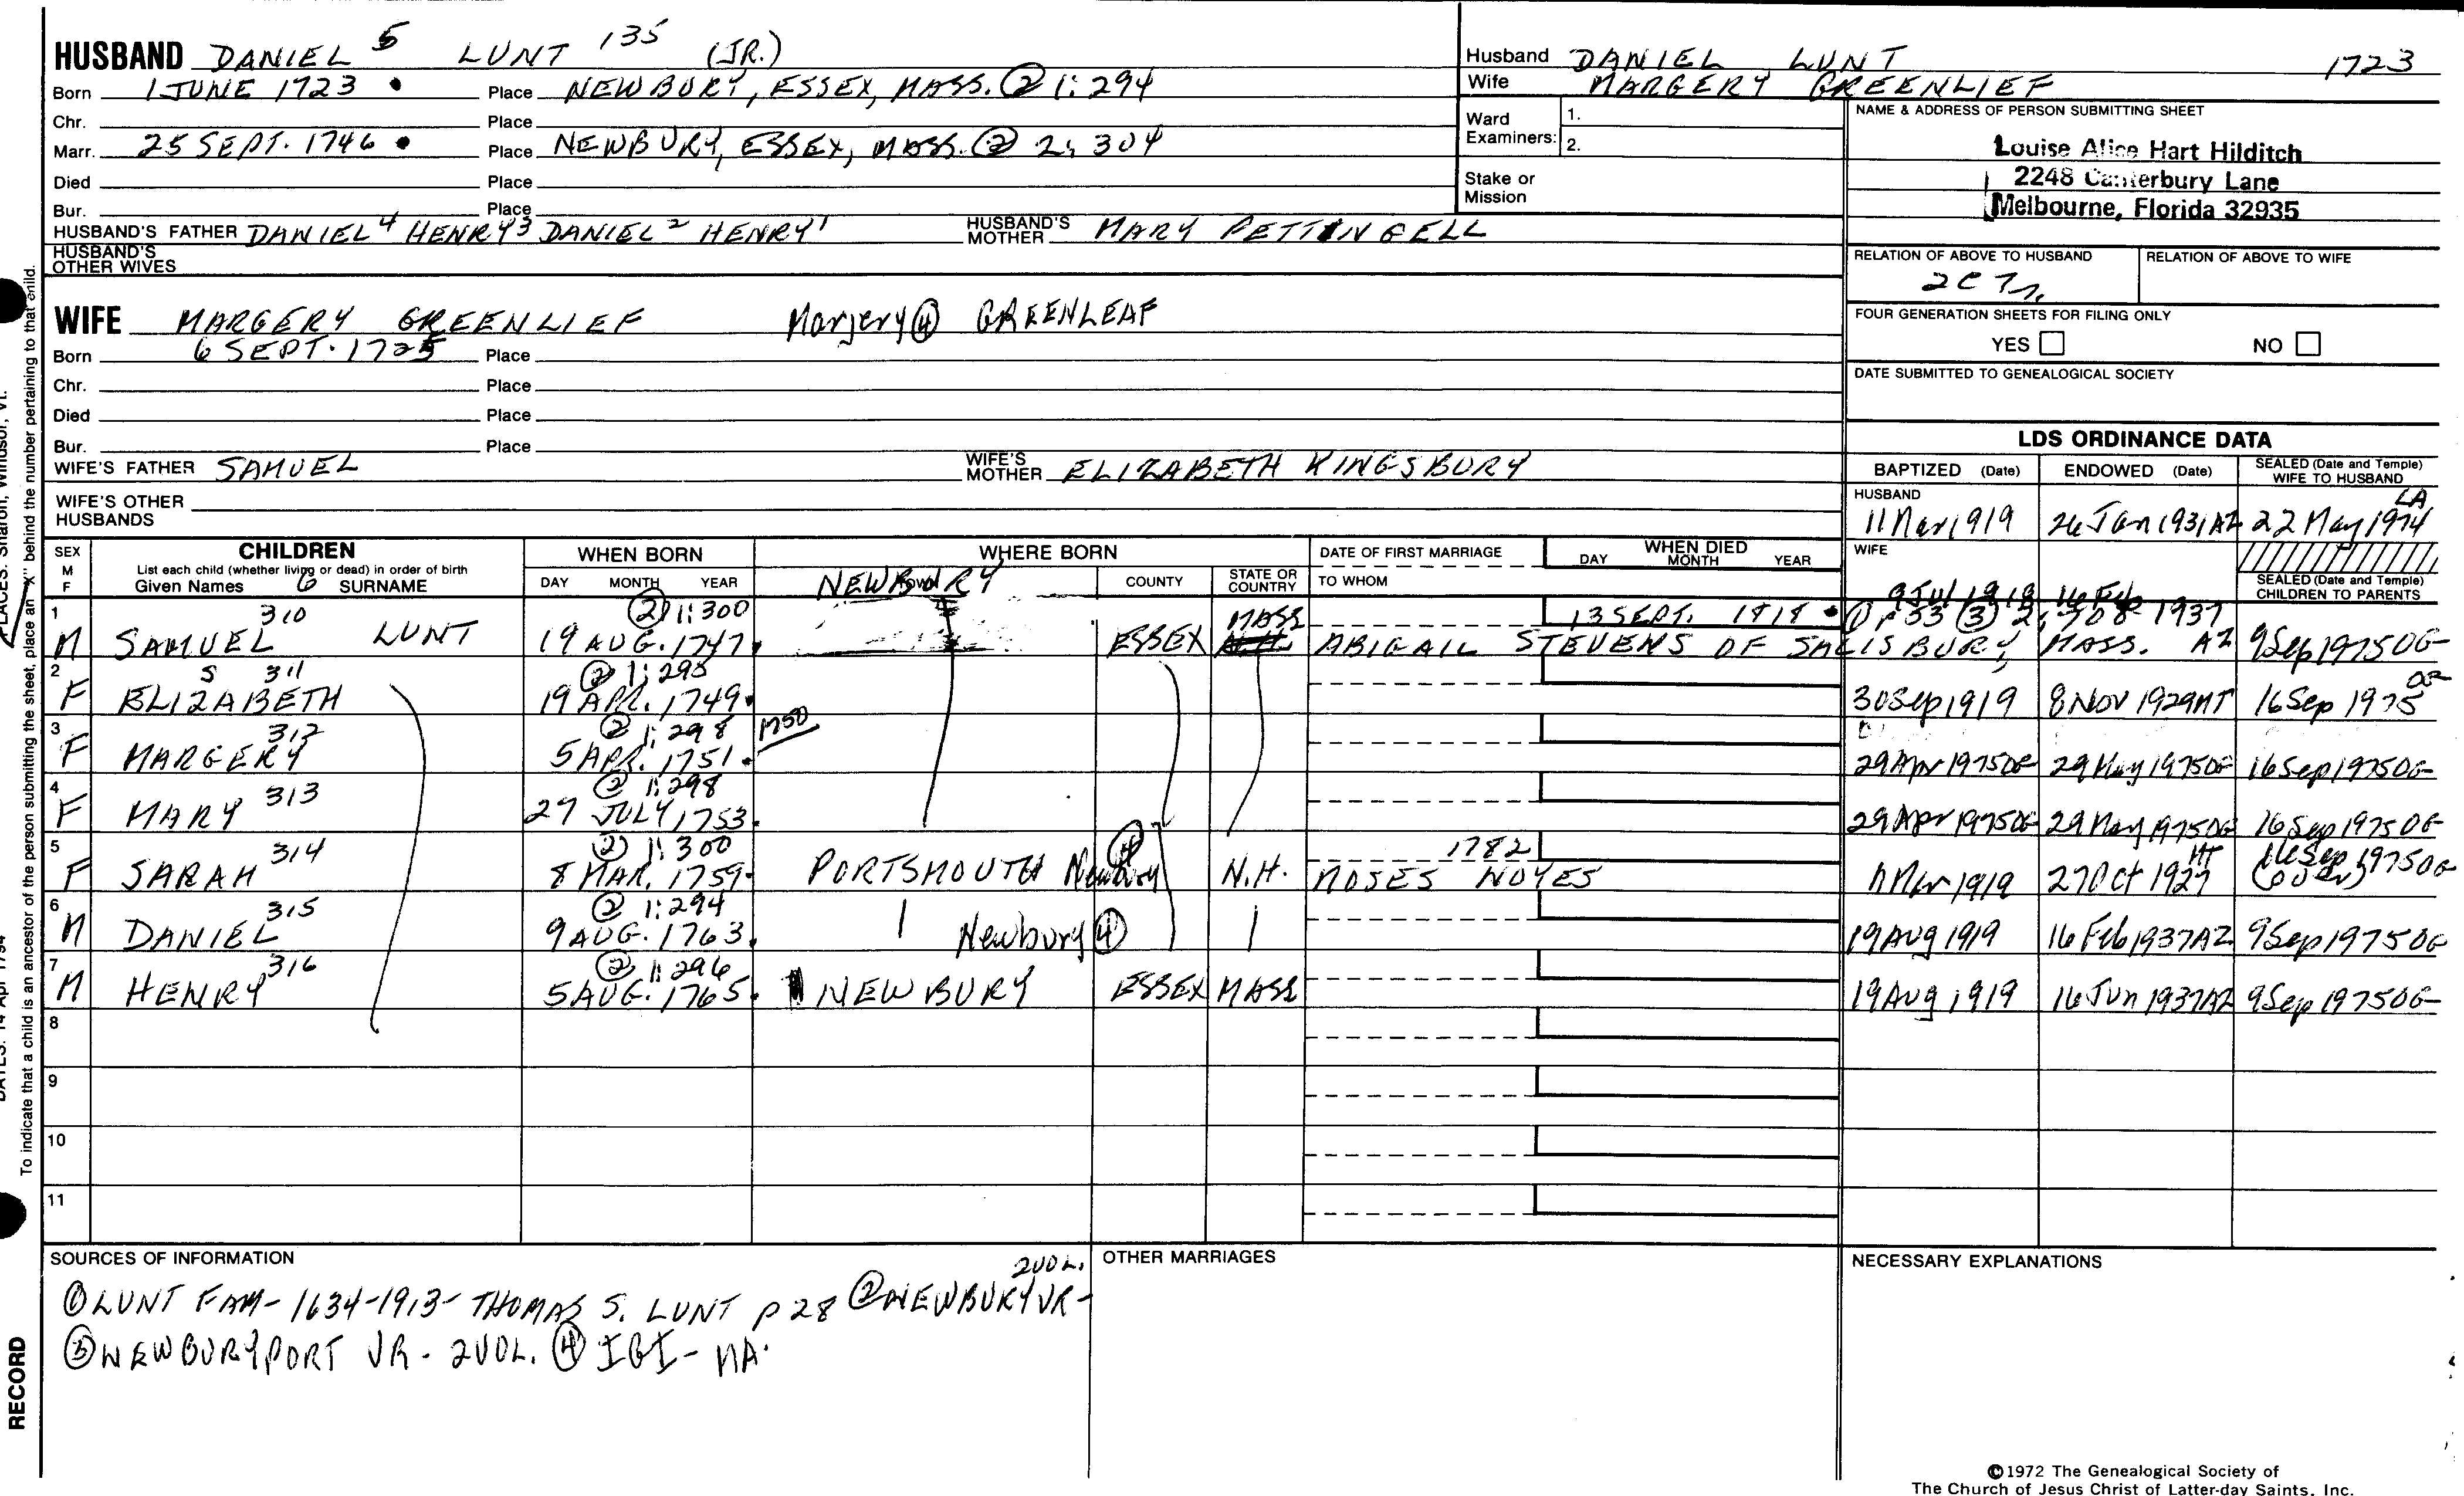 HUSBAND DANIEL 5 LUNT 135 (JR.)
Born 1 JUNE 1723 • Place NEWBURY, ESSEX, MASS. ② 1:294
Chr. Place
Marr. 25 SEPT. 1746 • Place NEWBURY, ESSEX, MASS. ② 2: 304
Died Place
Bur. Place
HUSBAND'S FATHER DANIEL 4 HENRY 3 DANIEL 2 HENRY 1 HUSBAND'S MOTHER MARY PETTINGELL
HUSBAND'S OTHER WIVES
Husband DANIEL LUNT 1723
Wife MARGERY GREENLIEF
Ward Examiners: 1.
2.
Stake or Mission
NAME & ADDRESS OF PERSON SUBMITTING SHEET
Louise Alice Hart Hilditch
2248 Canterbury Lane
Melbourne, Florida 32935
RELATION OF ABOVE TO HUSBAND RELATION OF ABOVE TO WIFE
2C 7
FOUR GENERATION SHEETS FOR FILING ONLY
YES NO
DATE SUBMITTED TO GENEALOGICAL SOCIETY
WIFE MARGERY GREENLIEF Marjery ④ GREENLEAF
Born 6 SEPT. 1725 Place
Chr. Place
Died Place
Bur. Place
WIFE'S FATHER SAMUEL WIFE'S MOTHER ELIZABETH KINGSBURY
WIFE'S OTHER HUSBANDS
LDS ORDINANCE DATA
BAPTIZED (Date) ENDOWED (Date) SEALED (Date and Temple) WIFE TO HUSBAND
HUSBAND
11 Mar 1919 26 Jan 1931 AZ 22 May 1974 LA
WIFE
9 Jul 1919 16 Feb 1937 AZ
SEALED (Date and Temple) CHILDREN TO PARENTS
SEX M F
CHILDREN
List each child (whether living or dead) in order of birth
Given Names 6 SURNAME
WHEN BORN
DAY MONTH YEAR
WHERE BORN
NEWBURY Town COUNTY STATE OR COUNTRY
DATE OF FIRST MARRIAGE
TO WHOM
WHEN DIED
DAY MONTH YEAR
1 M SAMUEL 310 LUNT ② 1:300 19 AUG. 1747 ESSEX MASS 13 SEPT. 1818 • ① P 53 ③ 2:708 ABIGAIL STEVENS OF SALISBURY, MASS. 9 Sep 1975 OG
2 F ELIZABETH S 311 ② 1:295 19 APR. 1749 30 Sep 1919 8 Nov 1929 MT 16 Sep 1975 OG
3 F MARGERY 312 ② 1:298 5 APR. 1751 1750 29 Apr 1975 OG 29 May 1975 OG 16 Sep 1975 OG
4 F MARY 313 ② 1:298 27 JULY 1753 29 Apr 1975 OG 29 May 1975 OG 16 Sep 1975 OG
5 F SARAH 314 ② 1:300 8 MAR. 1759 PORTSMOUTH Newbury ④ N.H. 1782 MOSES NOYES 11 Mar 1919 27 Oct 1927 MT 16 Sep 1975 OG (over)
6 M DANIEL 315 ② 1:294 9 AUG. 1763 Newbury ④ 19 Aug 1919 16 Feb 1937 AZ 9 Sep 1975 OG
7 M HENRY 316 ② 1:296 5 AUG. 1765 NEWBURY ESSEX MASS 19 Aug 1919 16 Jun 1937 AZ 9 Sep 1975 OG
8
9
10
11
SOURCES OF INFORMATION
① LUNT FAM - 1634-1913 - THOMAS S. LUNT p 28 ② NEWBURY VR - 2 VOL.
③ NEWBURYPORT VR - 2 VOL. ④ IGI - MA.
OTHER MARRIAGES
NECESSARY EXPLANATIONS
©1972 The Genealogical Society of
The Church of Jesus Christ of Latter-day Saints, Inc.
To indicate that a child is an ancestor of the person submitting the sheet, place an "X" behind the number pertaining to that child.
PLACES: Sharon, Windsor, Vt.
DATES: 14 Apr 1794
RECORD